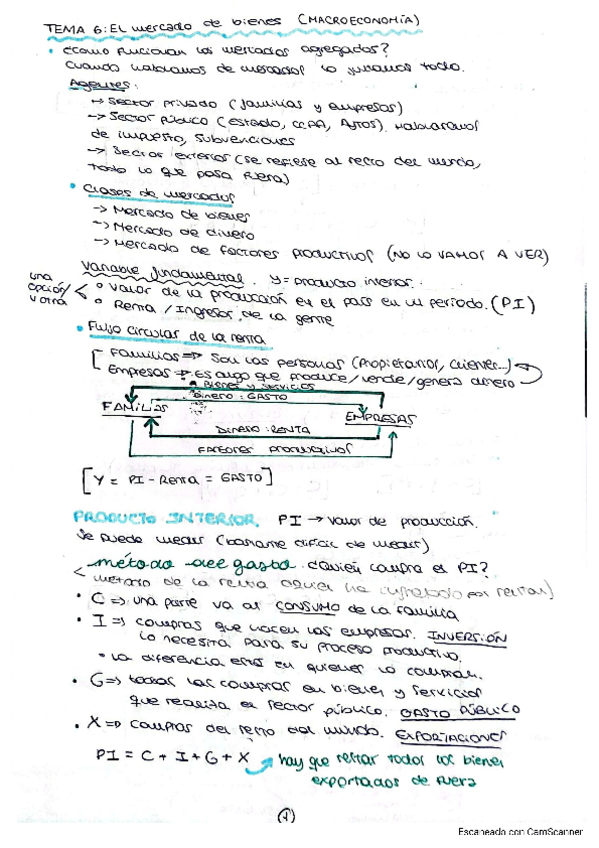 TEMA 6: EL mercado de bienes (MACROECONOMÍA)
• ¿Como funcionan los mercados agregados?
Cuando hablamos de mercados lo juntamos todo.
Agentes:
→ Sector privado (familias y empresas)
→ Sector público (estado, CCAA, Aytos). Hablaramos
de impuesto, subvenciones
→ Sector exterior (se refiere al resto del mundo,
todo lo que pasa fuera)
• Clases de mercados
→ Mercado de bienes
→ Mercado de dinero
→ Mercado de factores productivos (NO LO VAMOS A VER)
Variable fundamental. Y = producto interior.
una opción y otra
o Valor de la producción en el país en un período. (PI)
o Renta / Ingresos de la gente
• Flujo circular de la renta
Familias => Son las personas (propietarios, clientes...)
Empresas => Es algo que produce/vende/genera dinero
Bienes y servicios
Dinero: GASTO
FAMILIAS
EMPRESAS
Dinero: RENTA
FACTORES productivos
[Y = PI - Renta = GASTO]
PRODUCTO INTERIOR. PI → valor de producción.
Se puede medir (bastante difícil de medir)
método del gasto ¿quién compra el PI?
método de la renta
• C => una parte va al CONSUMO de la familia
• I => compras que hacen las empresas. INVERSIÓN
lo necesita para su proceso productivo.
• La diferencia está en quienes lo compran.
• G => todas las compras en bienes y servicios
que realiza el sector público. GASTO PÚBLICO
• X => compras del resto del mundo. EXPORTACIONES
PI = C + I + G + X
hay que restar todos los bienes
exportados de fuera
(1)
Escaneado con CamScanner